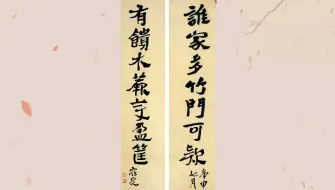 誰家多竹門可款
庚申七月
有饋木蕺芝盈筐